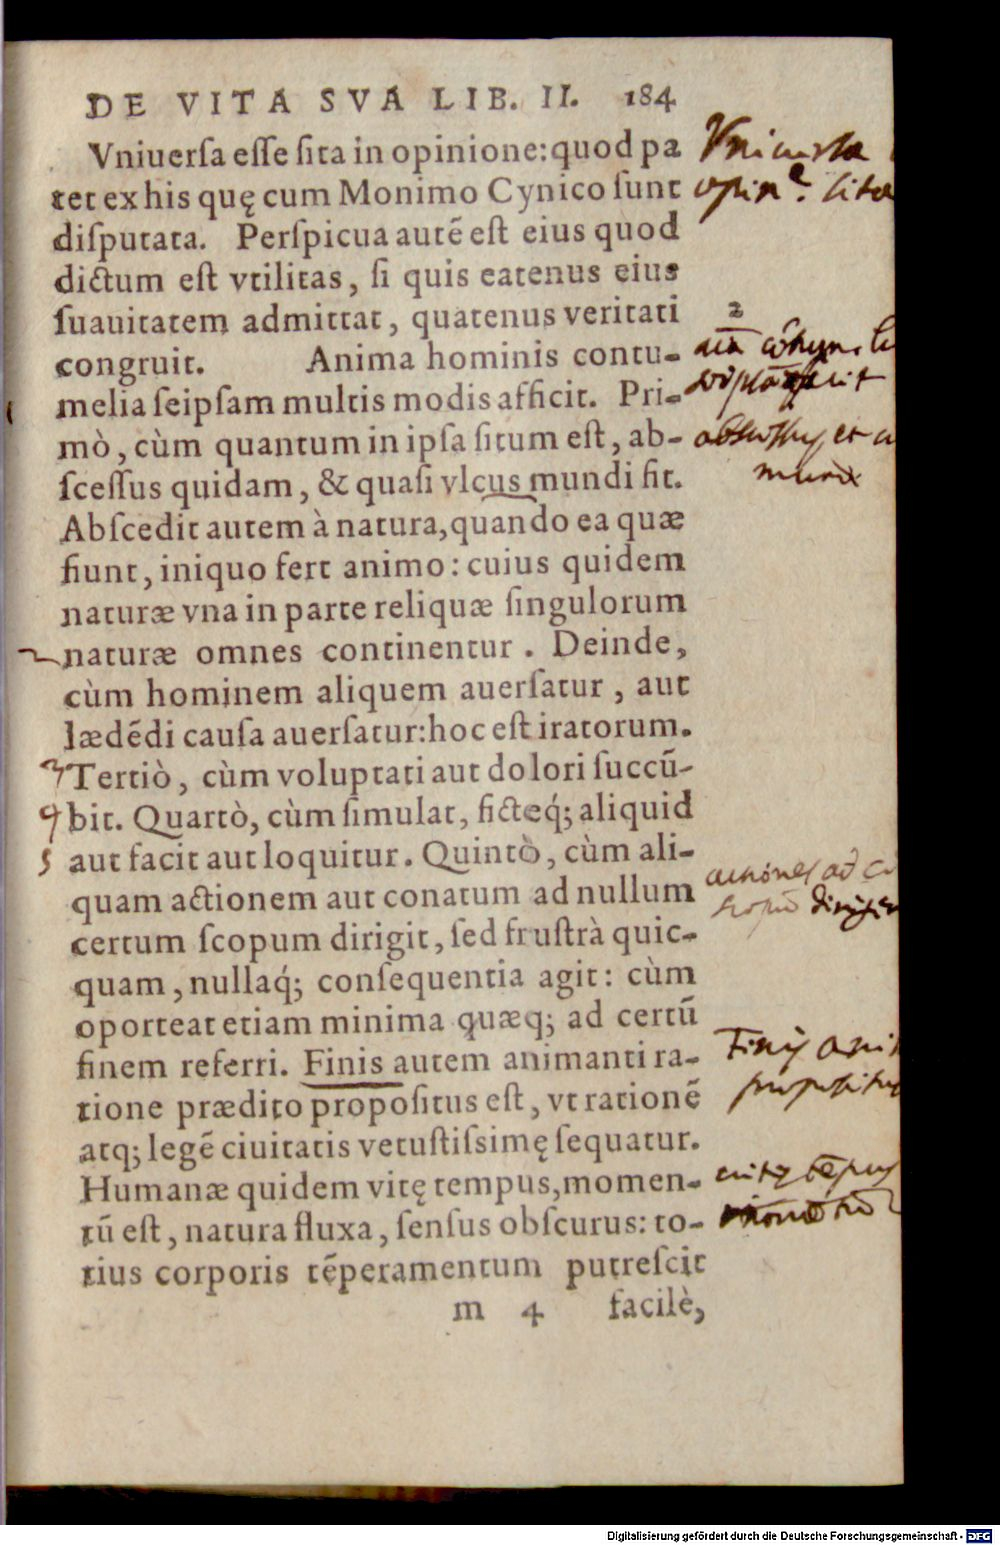 DE VITA SVA LIB. II. 184
Vniuerſa eſſe ſita in opinione: quod pa
tet ex his quę cum Monimo Cynico ſunt
diſputata. Perſpicua autē eſt eius quod
dictum eſt vtilitas, ſi quis eatenus eius
ſuauitatem admittat, quatenus veritati
congruit. Anima hominis contu-
melia ſeipſam multis modis afficit. Pri-
mò, cùm quantum in ipſa ſitum eſt, ab-
ſceſſus quidam, & quaſi vlcus mundi fit.
Abſcedit autem à natura, quando ea quæ
fiunt, iniquo fert animo: cuius quidem
naturæ vna in parte reliquæ ſingulorum
naturæ omnes continentur. Deinde,
cùm hominem aliquem auerſatur, aut
lædēdi cauſa auerſatur: hoc eſt iratorum.
Tertiò, cùm voluptati aut dolori ſuccū-
bit. Quartò, cùm ſimulat, ficteq́; aliquid
aut facit aut loquitur. Quintò, cùm ali-
quam actionem aut conatum ad nullum
certum ſcopum dirigit, ſed fruſtrà quic-
quam, nullaq́; conſequentia agit: cùm
oporteat etiam minima quæq; ad certū
finem referri. Finis autem animanti ra-
tione prædito propoſitus eſt, vt rationē
atq; legē ciuitatis vetuſtiſsimę ſequatur.
Humanæ quidem vitę tempus, momen-
tū eſt, natura fluxa, ſenſus obſcurus: to-
tius corporis tēperamentum putreſcit
m 4 facilè,
Vniuersa
2
et
mundi
3
4
5
actiones ad
scopū
Finis
propositus
Digitalisierung gefördert durch die Deutsche Forschungsgemeinschaft - DFG